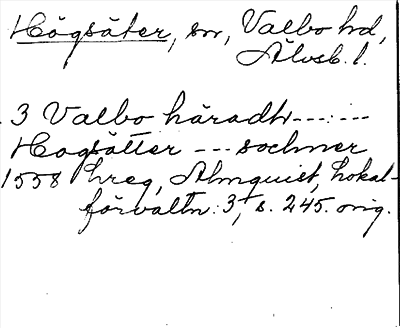 Högsäter, sn, Valbo hd,
Älvsb. l.
3 Valbo häradh--:---
Hogsätter --- sochner
1558 hreg, Almquist, Lokal-
förvaltn: 3, s. 245. orig.